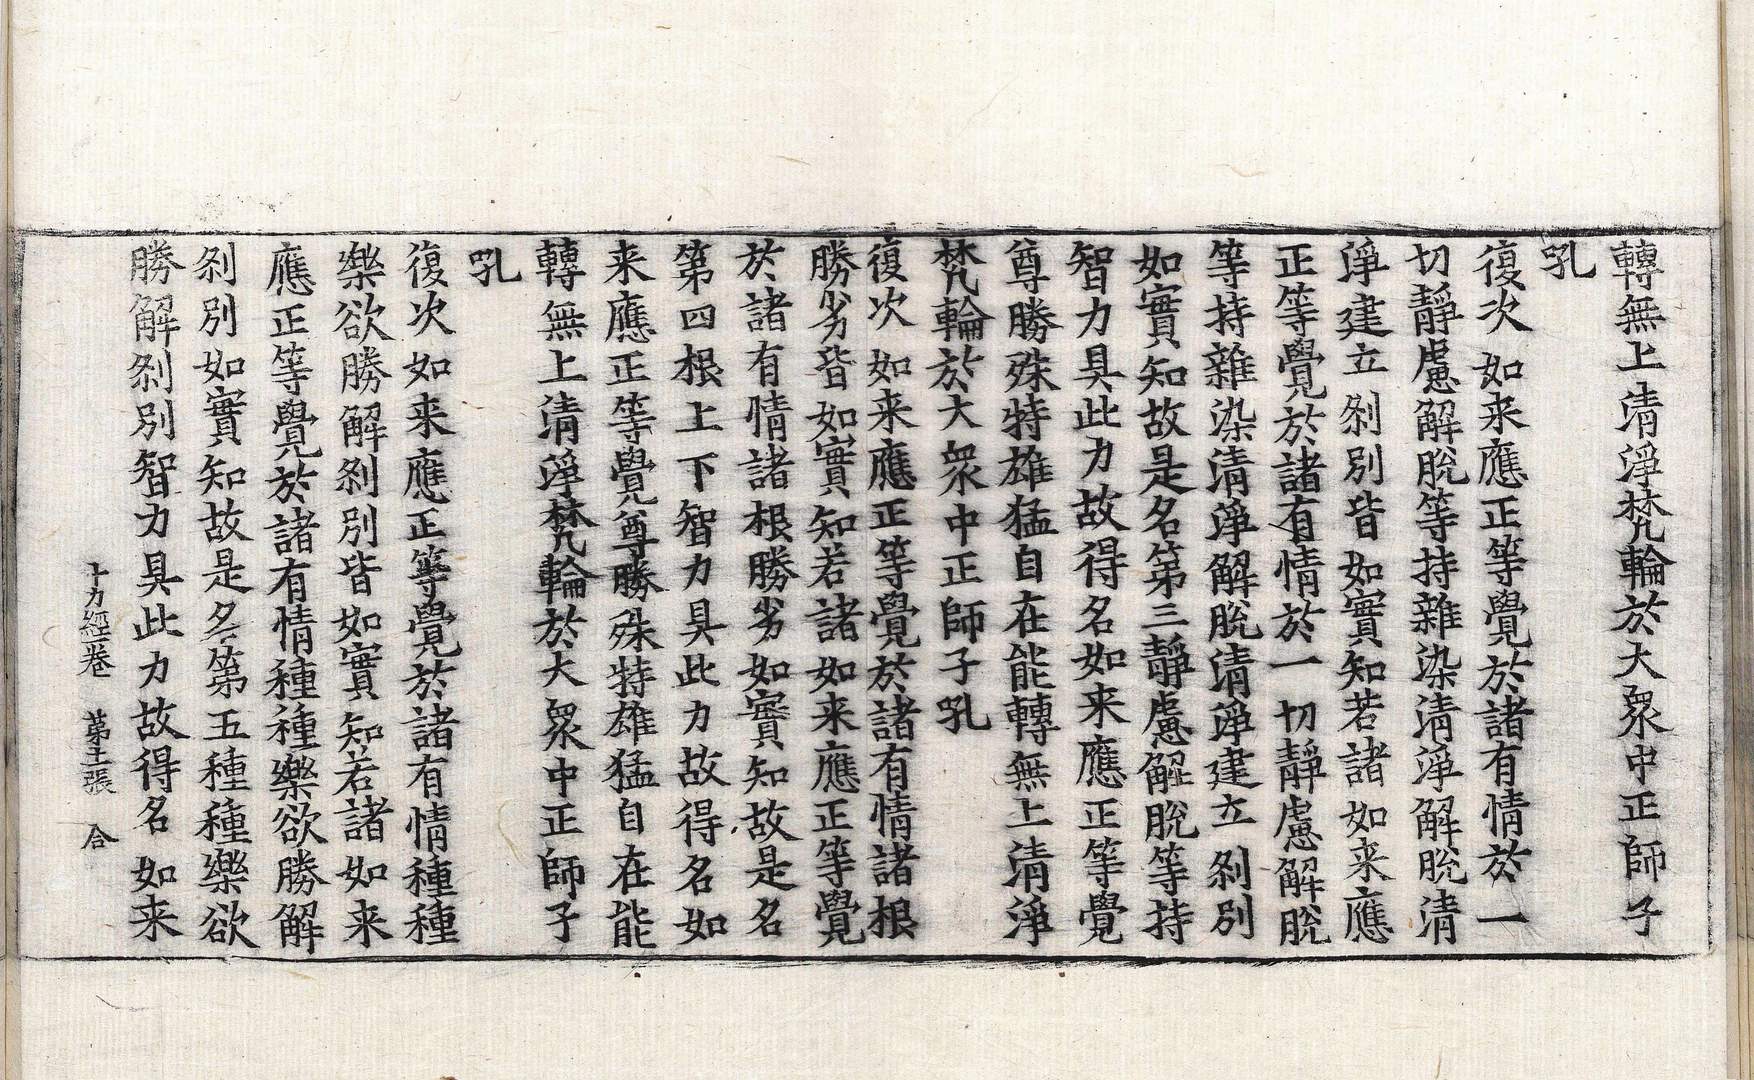 轉無上清淨梵輪於大衆中正師子
吼
復次如来應正等覺於諸有情於一
切靜慮解脫等持雜染清淨解脫清
淨建立剎別皆如實知若諸如来應
正等覺於諸有情於一切靜慮解脫
等持雜染清淨解脫清淨建立剎別
如實知故是名第三靜慮解脫等持
智力具此力故得名如来應正等覺
尊勝殊特雄猛自在能轉無上清淨
梵輪於大衆中正師子吼
復次如来應正等覺於諸有情諸根
勝劣皆如實知若諸如来應正等覺
於諸有情諸根勝劣如實知故是名
第四根上下智力具此力故得名如
来應正等覺尊勝殊特雄猛自在能
轉無上清淨梵輪於大衆中正師子
吼
復次如来應正等覺於諸有情種種
樂欲勝解剎別皆如實知若諸如来
應正等覺於諸有情種種樂欲勝解
剎別如實知故是名第五種種樂欲
勝解剎別智力具此力故得名如来
十力經卷 第 張 合